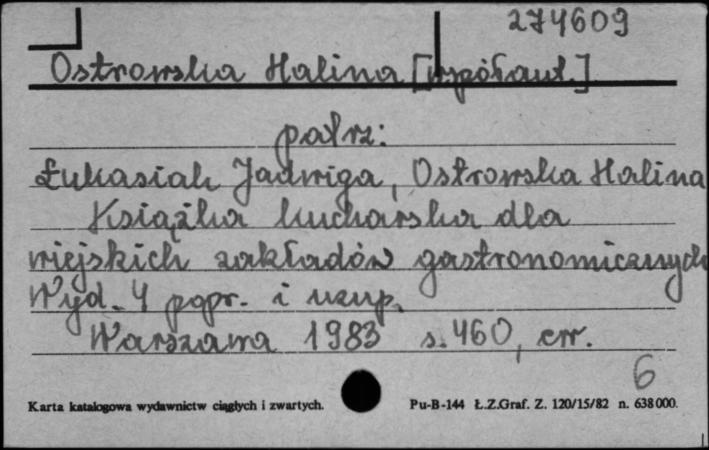 274609
Ostrowska Halina [współaut.]
patrz:
Łukasiak Jadwiga, Ostrowska Halina
Książka kucharska dla
wiejskich zakładów gastronomicznych
Wyd. 4 popr. i uzup.
Warszawa 1983 s. 460, err.
6
Karta katalogowa wydawnictw ciągłych i zwartych. Pu-B-144 Ł.Z.Graf. Z. 120/15/82 n. 638000.